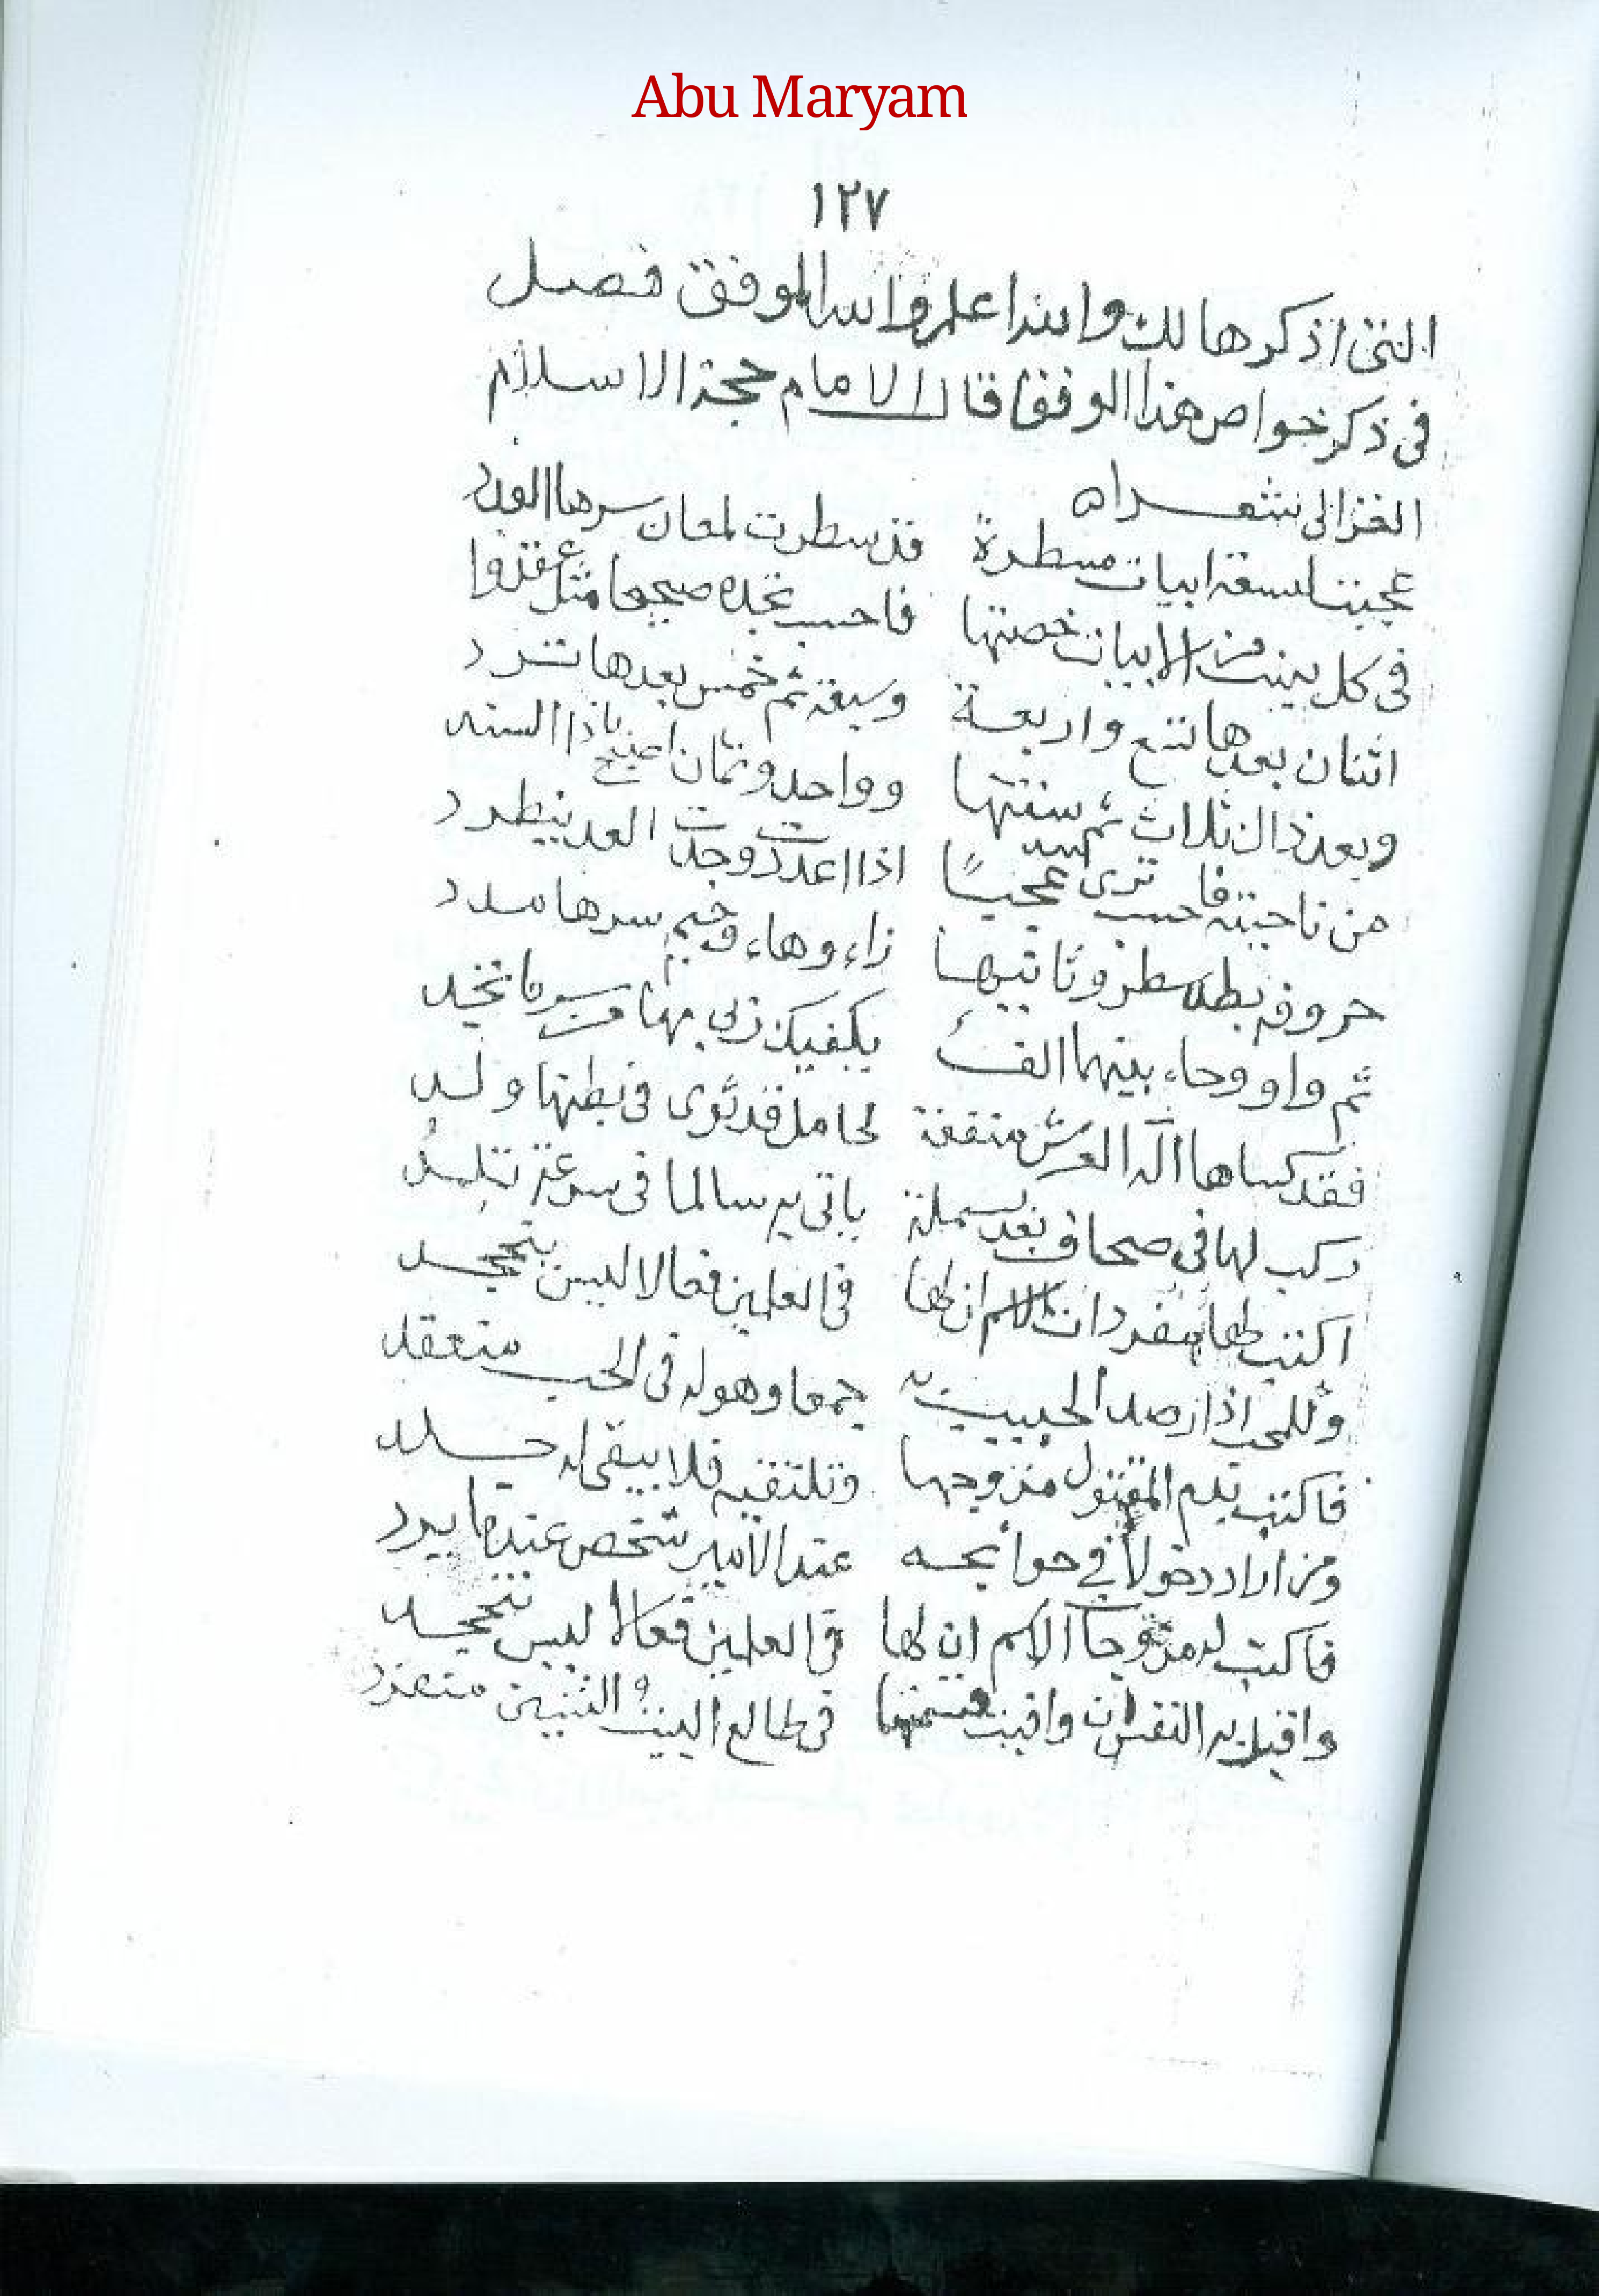 Abu Maryam
١٢٧
التى اذكرها لك والله اعلم والله الموفق فصل
فى ذكر خواص هذا الوفق قال الامام حجة الاسلام
الغزالى شعراه
عجبت لسعة ابيات مسطرة قد سطرت لمعان سرها
فى كل بيت من الابيات خصتها فاحسب تجده صحيحا مثل عقدوا
اثنان بعدها تسع واربعة وسبعة ثم خمس بعدها ترد
وبعد ذاك ثلاث ثم ستتها وواحد وثمان ياذا السند
من ناحيته فاحسب ترى عجبًا اذا اعددت وجدت العد ينطرد
حروفه بطد سطر وثانيها زاء وهاء وجيم سرها مدد
ثم واو وحاء بينهما الف يكفيك
فقد كساها اله العرش منفعة لحامل قد ثوى فى بطنها ولد
ركب لها فى صحاف بعد بسملة ياتى به سالما فى سرعة تلد
اكتب لها مفردات الاسم ان لها فى العلمين فعالا ليس ينجحد
وللمحب اذا رصد الحبيب جمعا وهو له فى الحب منعقد
فاكتب بدم المقتول مزوجها وتلتقيه فلا يبقى له جلد
ومن اراد دخولا في حوائجه عند الامير شخص عندما يرد
فاكتب له مزوجا الاسم ان لها فى العلمين فعالا ليس تنجحد
واقبل به وافيت قسمتها فى طالع البيت